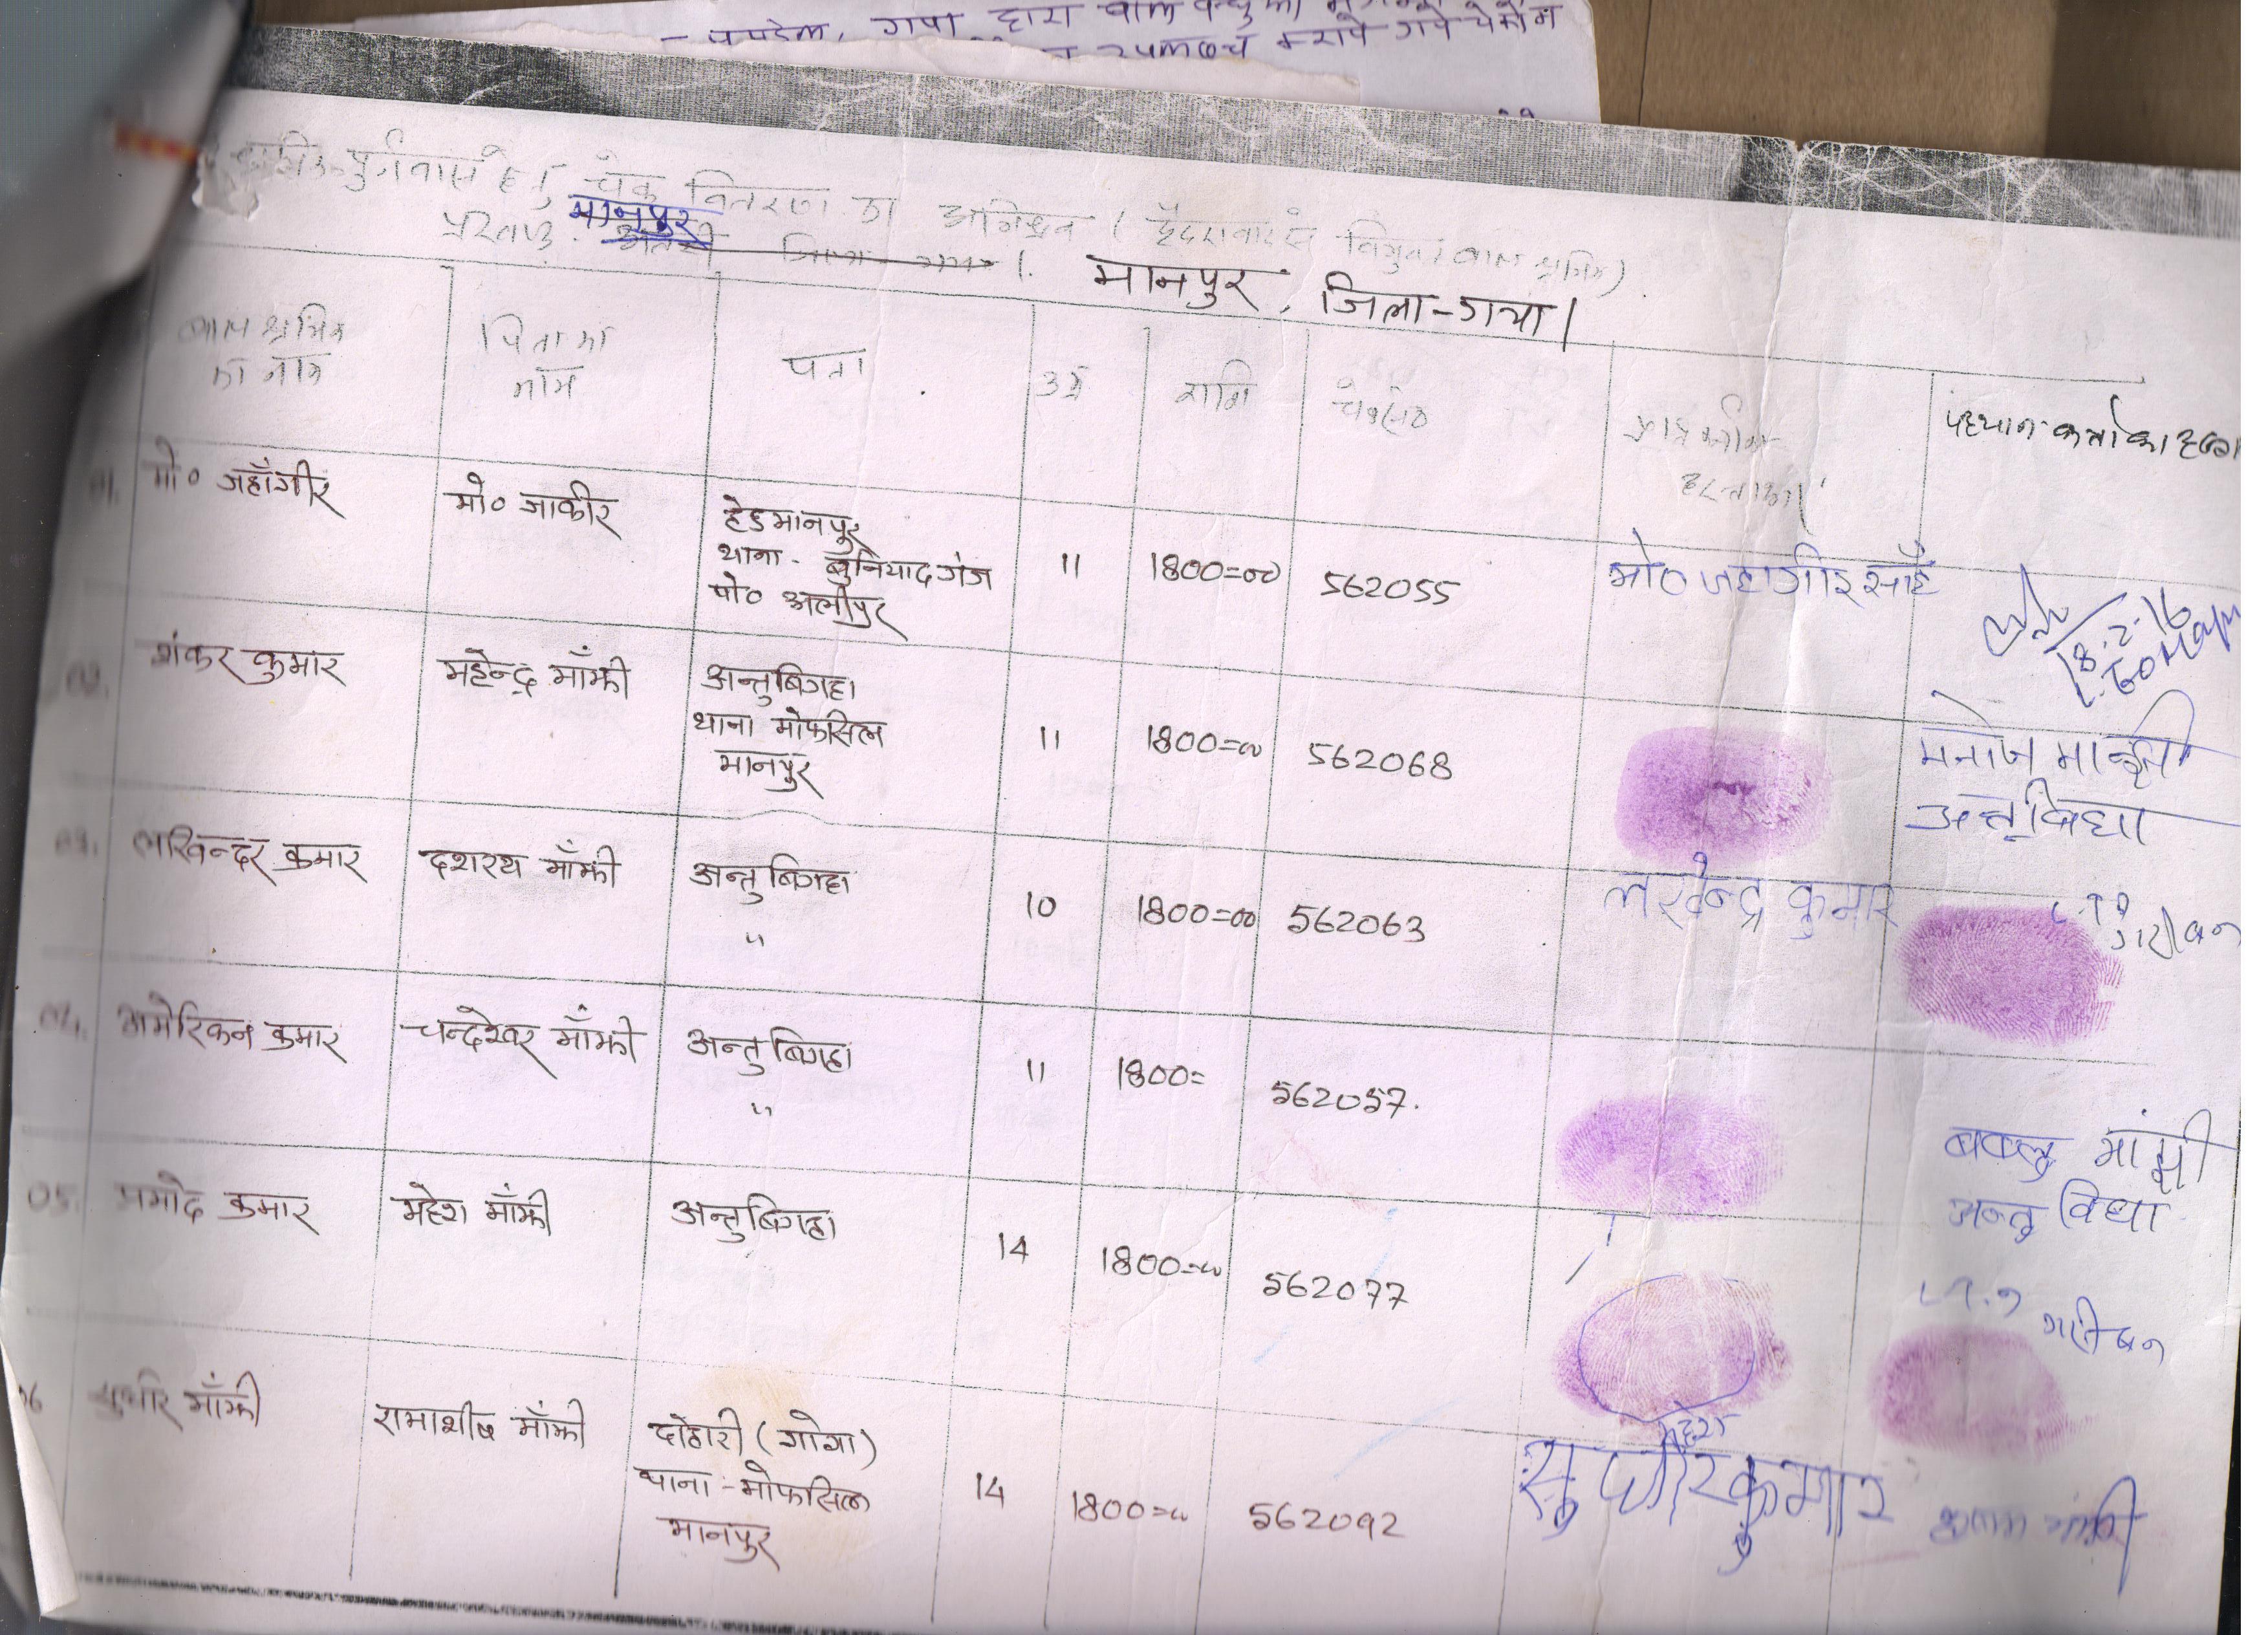 गया द्वारा बाल
उपलब्ध कराये गये
चेक वितरण का अभिश्रव ( हैदराबाद से विमुक्त बाल श्रमिक)
प्रखण्ड - मानपुर
मानपुर, जिला-गया।
बाल श्रमिक का नाम
पिता का नाम
पता
उम्र
राशि
चेक सं०
हस्ताक्षर
पहचान कर्ता का हस्ता
01. मो० जहाँगीर
मो० जाकीर
हेडमानपुर
थाना - बुनियादगंज
पो० अलीपुर
11
1800=00
562055
मो० जहागीर
18.2.16
02. शंकर कुमार
महेन्द्र माँझी
अन्तुबिगहा
थाना मोफसिल
मानपुर
11
1800=00
562068
मनोज मान्झी
अन्तु बिघा
03. लखिन्दर कुमार
दशरथ माँझी
अन्तुबिगहा
"
10
1800=00
562063
लखेन्द्र कुमार
04. अमेरिकन कुमार
चन्देश्वर माँझी
अन्तुबिगहा
"
11
1800=
562057.
बबलु मांझी
अन्तु विघा
05. प्रमोद कुमार
महेश माँझी
अन्तुबिगहा
14
1800=00
562077
महेश
06 सुधीर माँझी
रामाशीष माँझी
दोहारी (गोगा)
थाना - मोफसिल
मानपुर
14
1800=00
562092
सुधीर कुमार